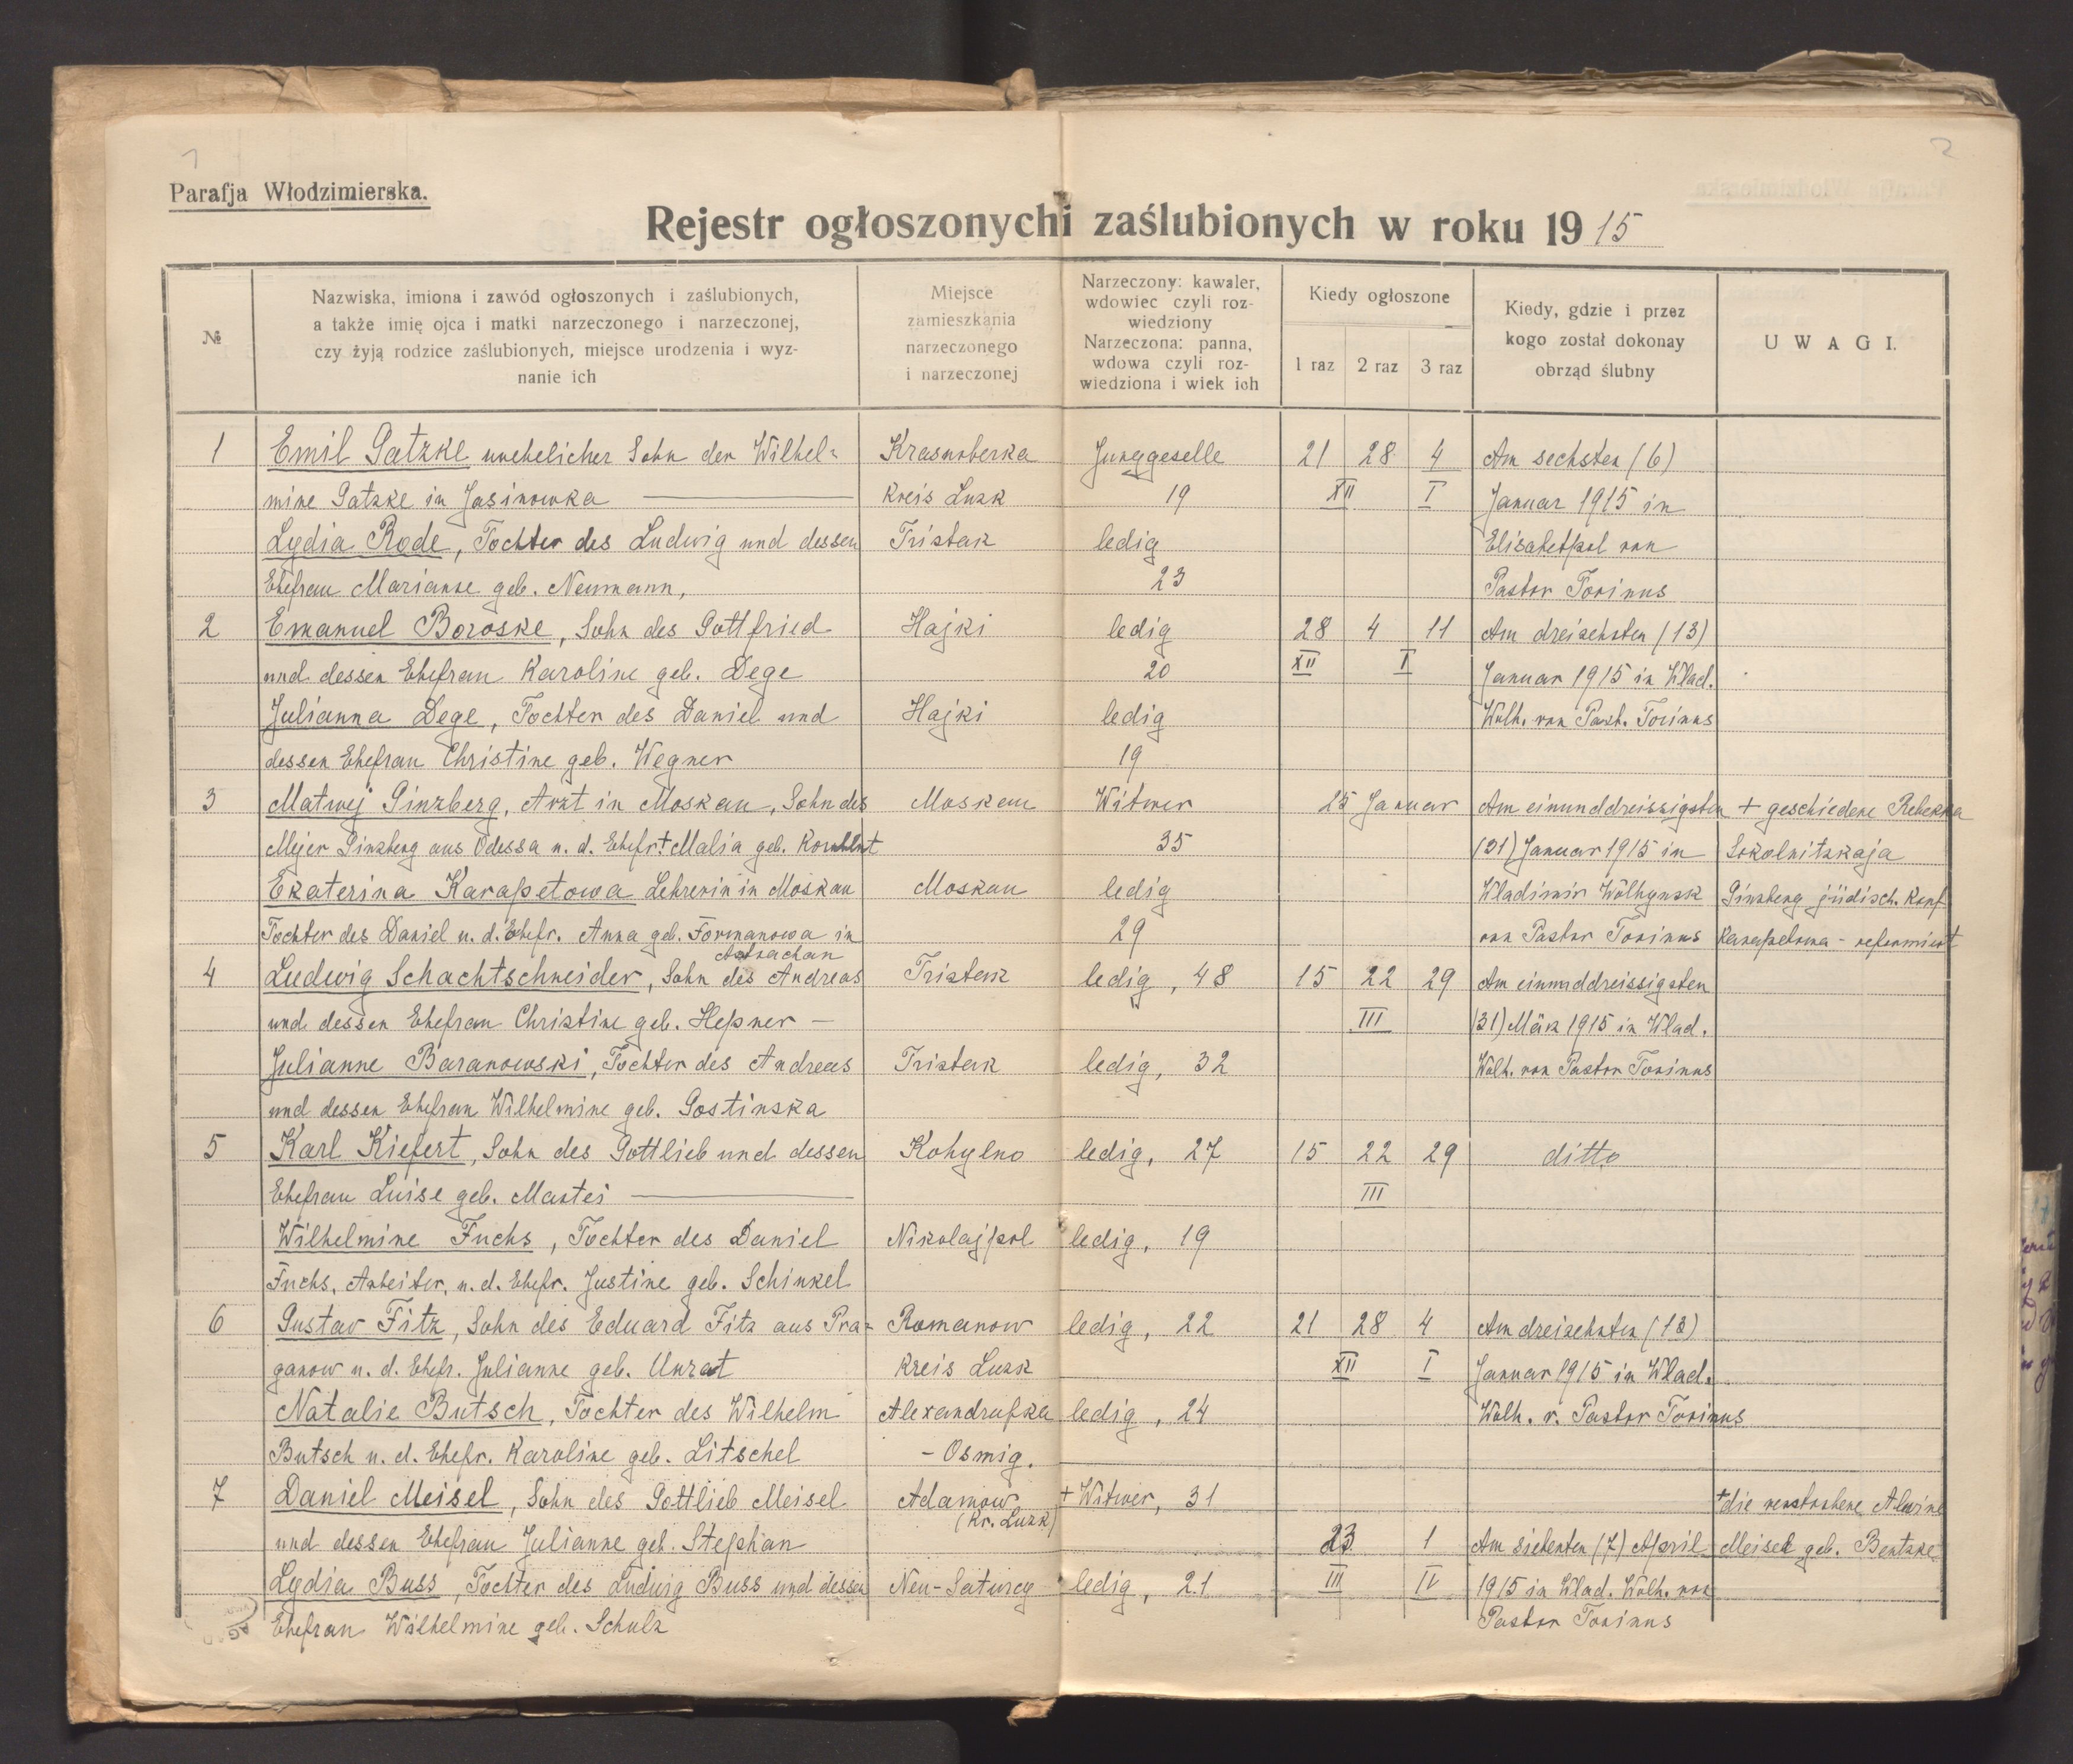 1
2
Parafja Włodzimierska.
Rejestr ogłoszonych i zaślubionych w roku 1915
№
Nazwiska, imiona i zawód ogłoszonych i zaślubionych,
a także imię ojca i matki narzeczonego i narzeczonej,
czy żyją rodzice zaślubionych, miejsce urodzenia i wyz-
nanie ich
Miejsce
zamieszkania
narzeczonego
i narzeczonej
Narzeczony: kawaler,
wdowiec czyli roz-
wiedziony
Narzeczona: panna,
wdowa czyli roz-
wiedziona i wiek ich
Kiedy ogłoszone
1 raz 2 raz 3 raz
Kiedy, gdzie i przez
kogo został dokonay
obrząd ślubny
UWAGI.
1 Emil Gatzke unehelicher Sohn der Wilhel= Krasnoberka Junggeselle 21 28 4 Am sechsten (6)
mine Gatzke in Jasinowka — Kreis Luzk 19 XII I Januar 1915 in
Lydia Rode, Tochter des Ludwig und dessen Tristak ledig Elisabetpol von
Ehefrau Marianne geb. Neumann, 23 Pastor Torinus
2 Emanuel Boroske, Sohn des Gottfried Hajki ledig 28 4 11 Am dreizehnten (13)
und dessen Ehefrau Karoline geb. Dege 20 XII I Januar 1915 in Wlad.
Julianna Dege, Tochter des Daniel und Hajki ledig Wolh. von Past. Torinus
dessen Ehefrau Christine geb. Wegner 19
3 Matwej Ginzberg, Arzt in Moskau, Sohn des Moskau Witwer 25 Januar Am einunddreissigsten + geschiedene Rebekka
Mejer Ginzberg aus Odessa u. d. Ehefr. + Malia geb. Kornblut 35 (31) Januar 1915 in Sokolnitzkaja
Ekaterina Karapetowa Lehrerin in Moskau Moskau ledig Wladimir Wolhynsk Ginzberg jüdisch. Konf.
Tochter des Daniel u. d. Ehefr. Anna geb. Formanowa in 29 von Pastor Torinus Karapetowa - reformiert
Astrachan
4 Ludwig Schachtschneider, Sohn des Andreas Tristak ledig, 48 15 22 29 Am einunddreissigsten
und dessen Ehefrau Christine geb. Hepner — III (31) März 1915 in Wlad.
Julianne Baranowski, Tochter des Andreas Tristak ledig, 32 Wolh. von Pastor Torinus
und dessen Ehefrau Wilhelmine geb. Gostinska
5 Karl Kiefert, Sohn des Gottlieb und dessen Kohylno ledig, 27 15 22 29 ditto
Ehefrau Luise geb. Martei — III
Wilhelmine Fuchs, Tochter des Daniel Nikolajpol ledig, 19
Fuchs, Arbeiter, u. d. Ehefr. Justine geb. Schinkel
6 Gustav Fitz, Sohn des Eduard Fitz aus Pra= Romanow ledig, 22 21 28 4 Am dreizehnten (13)
ganow u. d. Ehefr. Julianne geb. Unrat Kreis Luzk XII I Januar 1915 in Wlad.
Natalie Butsch, Tochter des Wilhelm Alexandrufka ledig, 24 Wolh. v. Pastor Torinus
Butsch u. d. Ehefr. Karoline geb. Litschel - Osmig.
7 Daniel Meisel, Sohn des Gottlieb Meisel Adamow + Witwer, 31 + die verstorbene Alwine
(Kr. Luzk)
und dessen Ehefrau Julianne geb. Stephan 23 1 Am siebenten (7) April Meisel geb. Bentzke
Lydia Buss, Tochter des Ludwig Buss und dessen Neu-Saturcy ledig, 21 III IV 1915 in Wlad. Wolh. von
Ehefrau Wilhelmine geb. Schulz Pastor Torinus